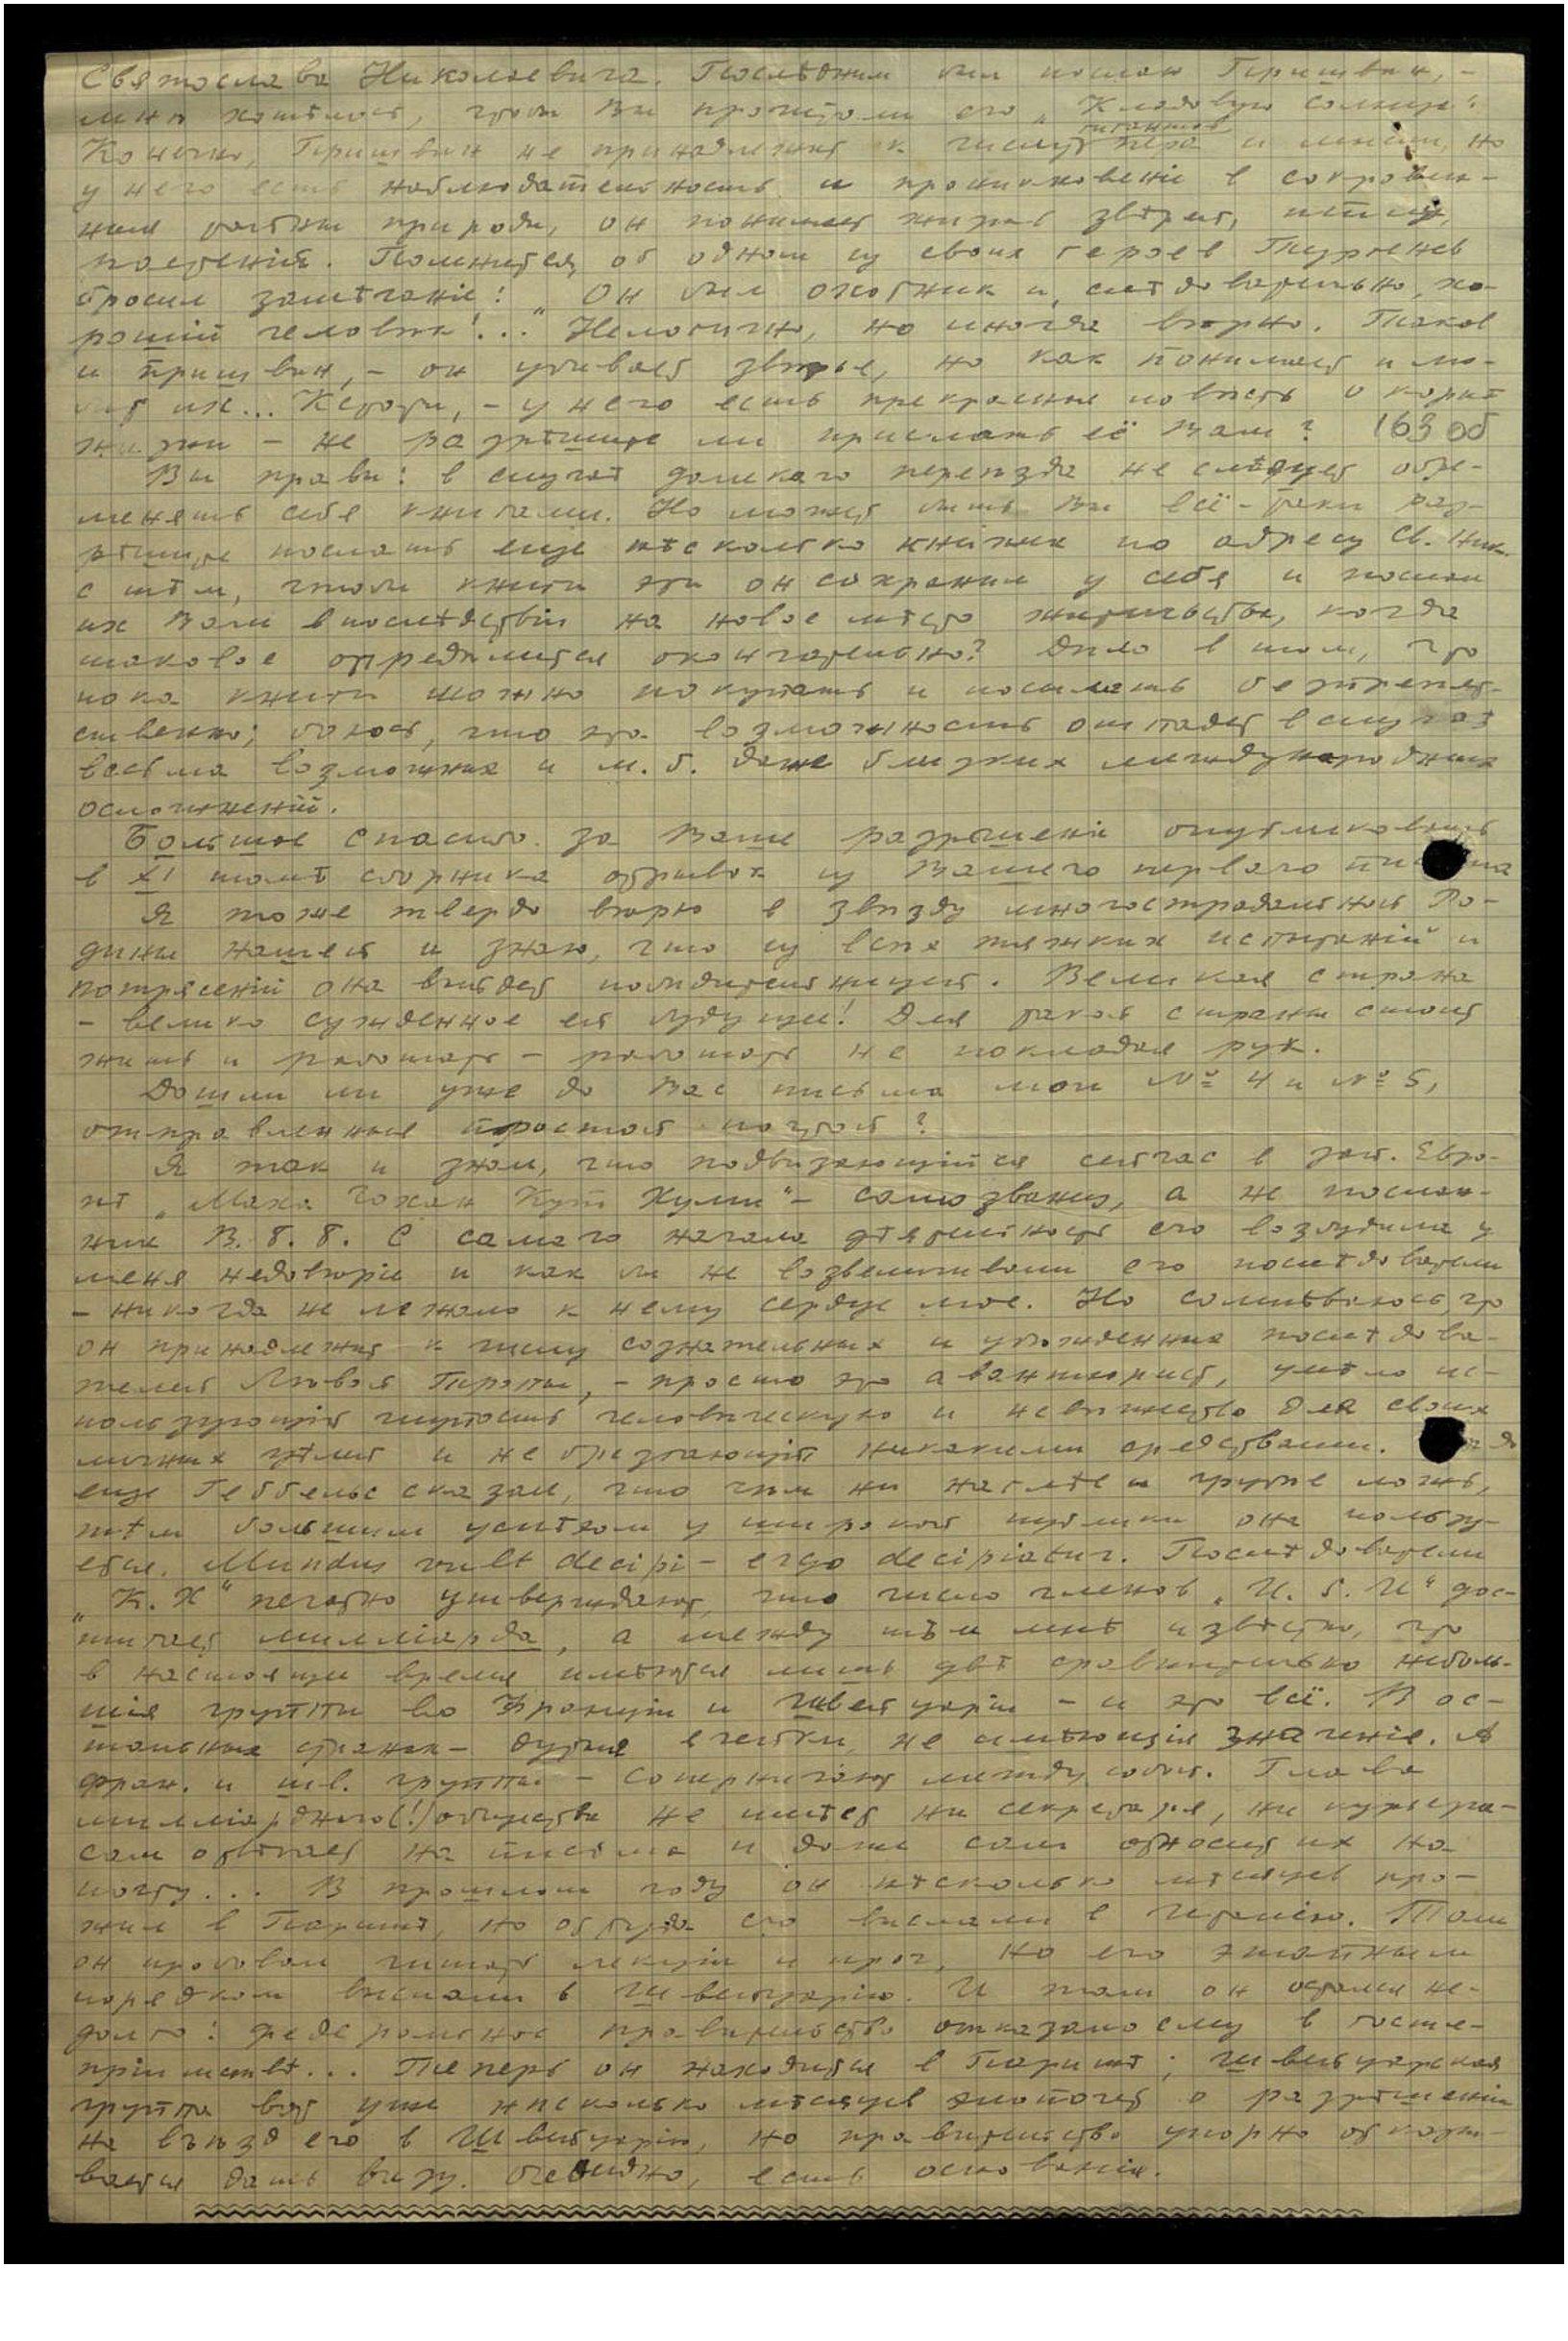 Святослава Николаевича. Послѣдним был послан Пришвин, –
мнѣ хотѣлось, чтобы Вы прочитали его „Кладовую солнца“.
Конечно, Пришвин не принадлежит к числу титанов пера и мысли, но
у него есть наблюдательность и проникновеніе в сокровен-
ныя тайны природы, он понимает жизнь звѣрей, птиц,
растеній. Помнится, об одном из своих героев Тургенев
бросил замѣчаніе: „Он был охотник и, слѣдовательно, хо-
рошій человѣк!..“ Нелогично, но иногда вѣрно. Таков
и Пришвин, – он убивает звѣрье, но как понимает и лю-
бит их... Кстати, – у него есть прекрасная повѣсть о корнѣ
жизни – не разрѣшите ли прислать её Вам? 163 об
Вы правы: в случаѣ далекаго переѣзда не слѣдует обре-
менять себя книгами. Но может быть Вы всё-таки раз-
рѣшите послать еще нѣсколько книжек по адресу Св. Ник.
с тѣм, чтобы книги эти он сохранил у себя и послал
их Вам впослѣдствіи на новое мѣсто жительства, когда
таковое опредѣлится окончательно? Дѣло в том, что
пока книги можно покупать и посылать безпрепят-
ственно; боюсь, что эта возможность отпадет в случаѣ
весьма возможных и м. б. даже близких международных
осложненій.
Большое спасибо за Ваше разрѣшеніе опубликовать
в XI томѣ сборника отрывок из Вашего перваго письма
Я тоже твердо вѣрю в звѣзду многострадальной Ро-
дины нашей и знаю, что из всех тяжких испытаній и
потрясеній она выйдет побѣдительницей. Великая страна
– велико сужденное ей будущее! Для такой страны стоит
жить и работать – работать не покладая рук.
Дошли ли уже до Вас письма мои № 4 и № 5,
отправленныя простой почтой?
Я так и знал, что подвизающійся сейчас в зап. Евро-
пѣ „Маха Чохан Кут Хуми“ – самозванец, а не послан-
ник В. Б. Б. С самаго начала дѣятельность его возбудила у
меня недовѣріе и как ни возвеличивали его послѣдователи
– никогда не лежало к нему сердце мое. Но сомнѣваюсь, что
он принадлежит к числу сознательных и убѣжденных послѣдова-
телей Лѣвой Тропы, – просто это авантюрист, умѣло ис-
пользующій глупость человѣческую и невѣжество для своих
личных цѣлей и не брезгающій никакими средствами.
еще Геббельс сказал, что чѣм наглѣе и грубѣе ложь,
тѣм большим успѣхом у широкой публики она пользу-
ется. Mundus vult decipi – ergo decipiatur. Послѣдователи
„К. Х“ печатно утверждают, что число членов „И. Б. И“ дос-
тигает милліарда, а между тѣм мнѣ извѣстно, что
в настоящее время имѣются лишь двѣ сравнительно неболь-
шія группы во Франціи и Швейцаріи – и это всё. В ос-
тальных странах – дутыя ячейки, не имѣющія значенія. А
фран. и шв. группы – соперничают между собой. Глава
милліарднаго(!) общества не имѣет ни секретаря, ни курьера –
сам отвѣчает на письма и даже сам относит их на
почту... В прошлом году он нѣсколько мѣсяцев про-
жил в Парижѣ, но оттуда его выслали в Италію. Там
он пробовал читать лекціи и проч, но его этапным
порядком выслали в Швейцарію. И там он остался не-
долго: федеральное правительство отказало ему в госте-
пріимствѣ... Теперь он находится в Парижѣ; Швейцарская
группа вот уже нѣсколько мѣсяцев хлопочет о разрѣшеніи
на въѣзд его в Швейцарію, но правительство упорно отказы-
вается дать визу. Очевидно, есть основанія.